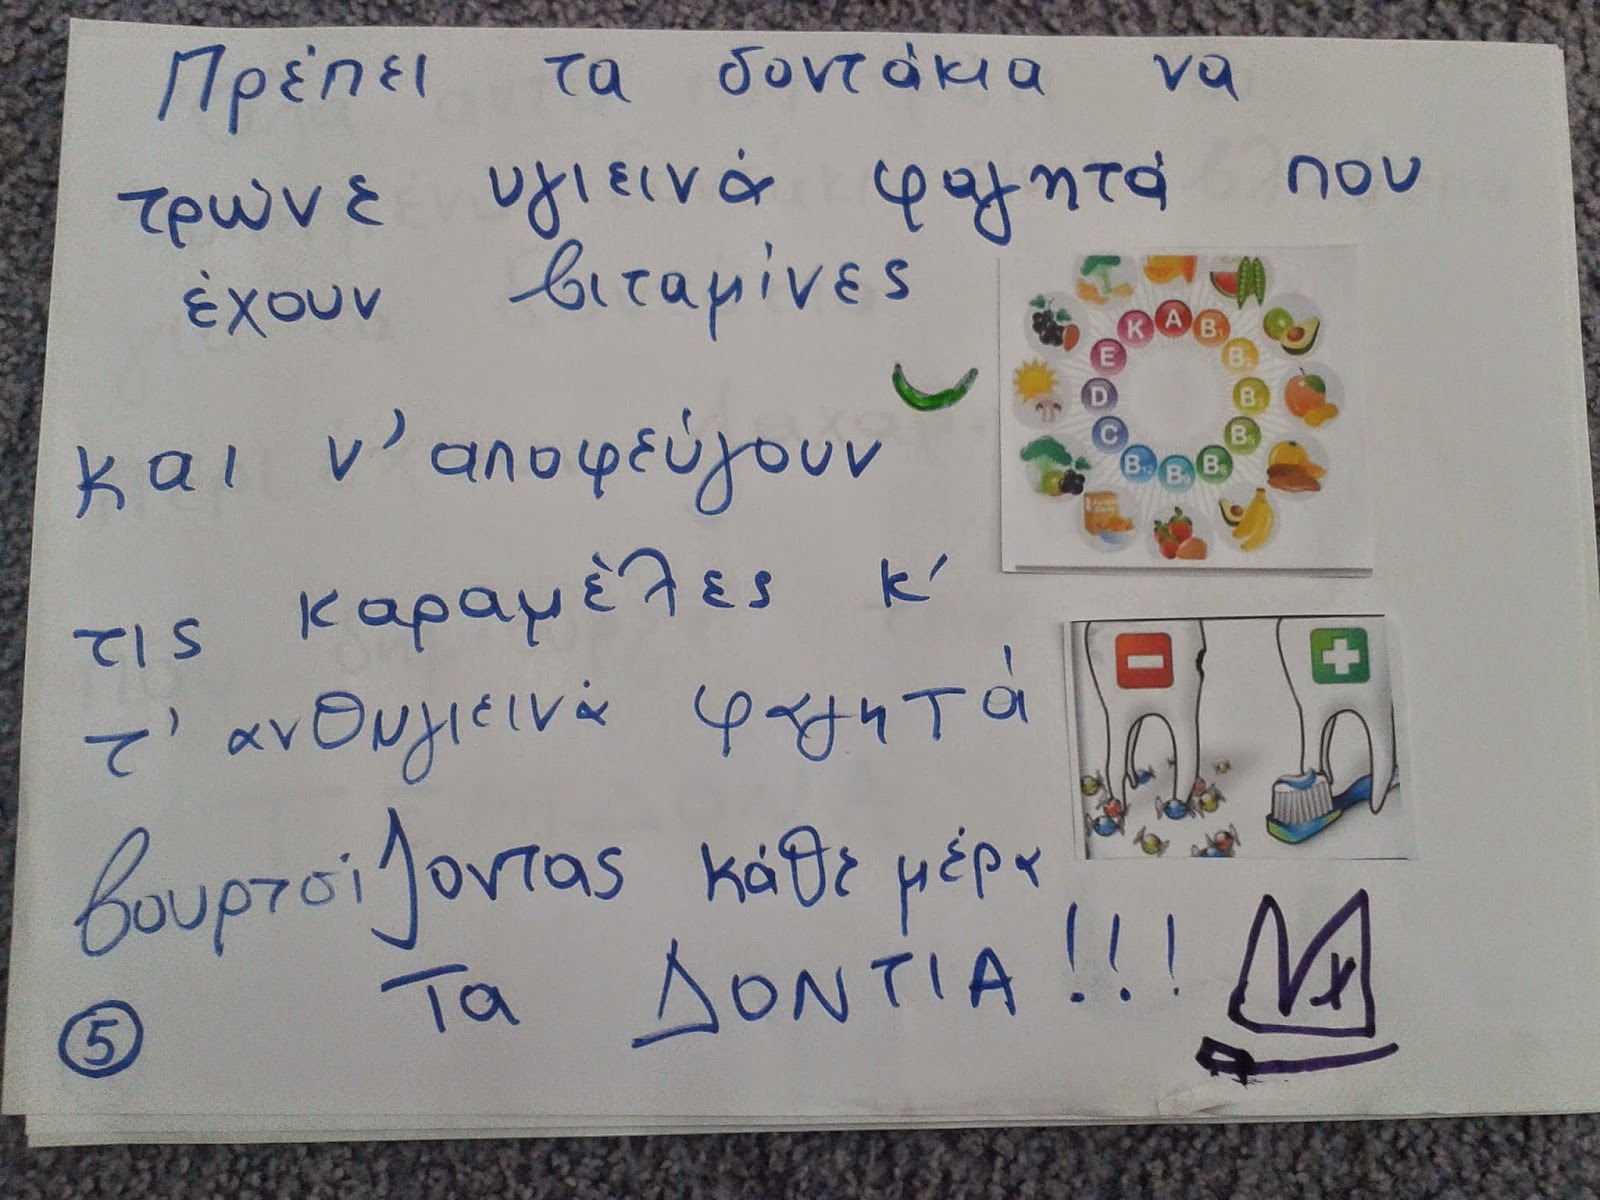 Πρέπει τα δοντάκια να
τρώνε υγιεινά φαγητά που
έχουν βιταμίνες
και ν' αποφεύγουν
τις καραμέλες κ'
τ' ανθυγιεινά φαγητά
βουρτσίζοντας κάθε μέρα
Τα ΔΟΝΤΙΑ!!!
5
K A B1
E B2
D B3
C B5
B12 B9 B6